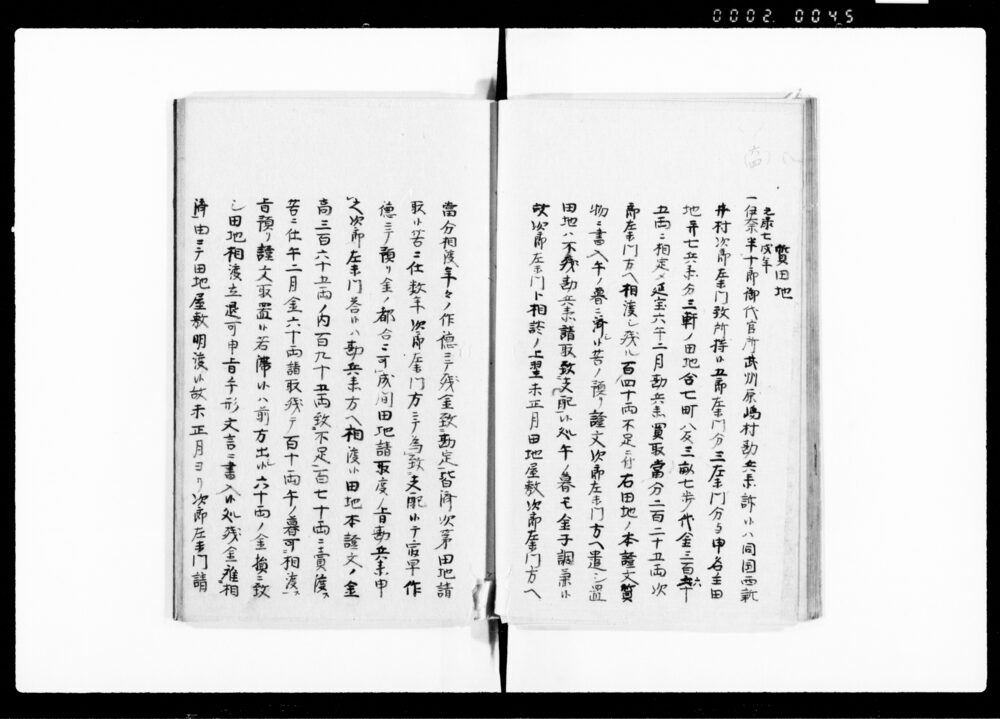 0002 0045
質田地
元禄七戌年
一伊奈半十郎御代官所武州原嶋村勘兵衛訴ハ同国西新
井村次郎左衛門致所持五郎左衛門分三左衛門分与申名主田
地并七兵衛分三軒ノ田地合七町八反三畝七歩代金三百六十
五両ニ相定メ延宝六午二月勘兵衛買取當分二百二十五両次
郎左衛門方ヘ相渡シ残ル百四十両不足ニ付右田地ノ本證文質
物ニ書入午ノ暮ニ済シ筈ノ預リ證文次郎左衛門方ヘ遣シ置
田地ハ不残勘兵衛請取致支配処午ノ暮モ金子調兼
故次郎左衛門ト相談ノ上翌未正月田地屋敷次郎左衛門方ヘ
當分相渡年々ノ作徳ニテ残金致勘定皆済次第田地請
取筈ニ仕数年次郎左衛門方ニテ為致支配テ最早作
徳ニテ預リ金ノ都合ニ可成間田地請取度旨勘兵衛申
之次郎左衛門答ハ勘兵衛方ヘ相渡田地本證文ノ金
高三百六十五両ノ内百九十五両致不足百七十両ニ賣渡ス
筈ニ仕午二月金六十両請取残テ百十両午ノ暮可相渡ス
旨預リ證文取置若滞ハ前方出シ六十両ノ金損ニ致
シ田地相渡立退可申旨手形文言ニ書入処残金雖相
済由ニテ田地屋敷明渡故未正月ヨリ次郎左衛門請